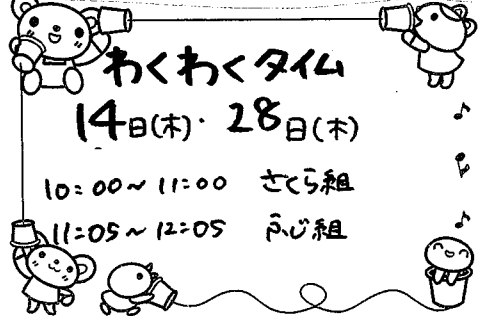 わくわくタイム
14日(木)・28日(木)
10:00～11:00 さくら組
11:05～12:05 ふじ組